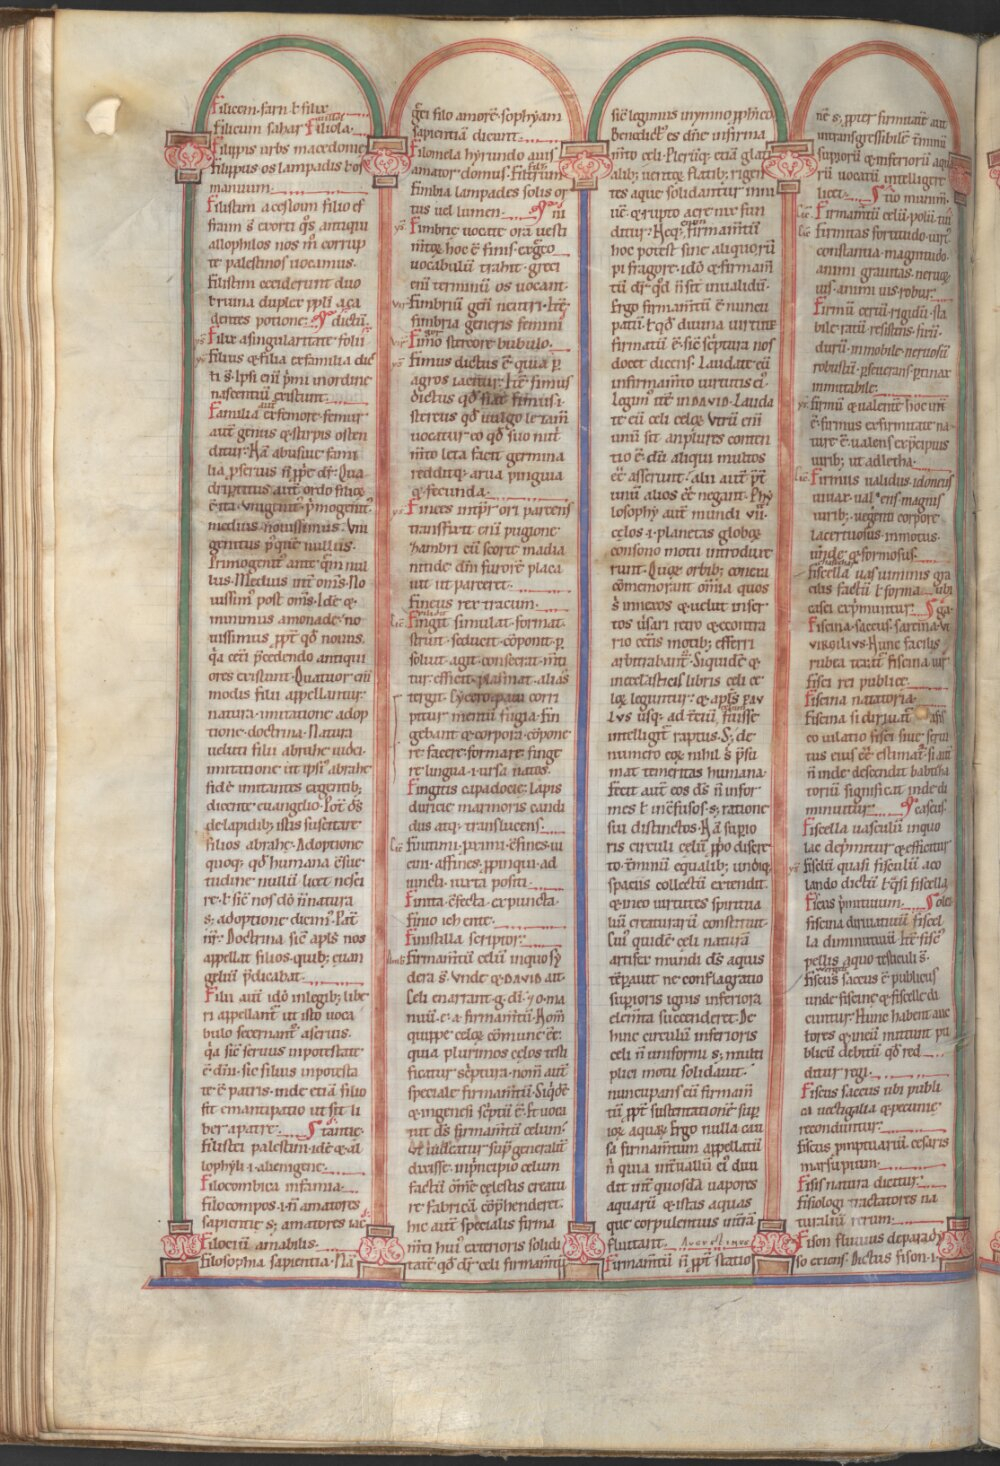 Filicem · farn ł filix
Filicum sahar Filiola
Filippis urbs macedonie
Filippus os lampadis ł os
manuum
Filistim a cesloim filio ef
fraim s̄ exorti q̄s antiqui
allophilos nos m̄ corrup
te palestinos uocamus.
Filistim ceciderunt duo
dentes potione
Filix a singularitate folii
Filius & filia ex familia dic
ti s̄. Ipsi enī p̄mi in ordine
nascentiū existunt
Familia ex femore. femur
autē genus & stirpis osten
ditur. Nā abusiue fami
lia p̄ seruis n̄ pp̄e dr̄. Qua
dripertitus autē ordo filioꝝ
ē. ita. unigenit᷒. p̄mogenit᷒.
medius. nouissimus. Uni
genitus p̄ quē nullus.
Primogenit᷒ ante quē nul
lus. Medius int̄ om̄s. No
uissim᷒ post om̄s. Idē &
minimus a monade. no
uissimus ppt̄ qd̄ nouus.
q̄a cet̄i p̄cedendo antiqui
ores existunt. Quatuor enī
modis filii appellantur
natura. imitatione. adop
tione. doctrina. Natura
ueluti filii abrahe iudei.
imitatione ut ipsi᷒ abrahe
fidē imitantes ex gentib;
dicente euanglio. Pot̄ ds̄
de lapidib; istis suscitare
filios abrahe. Adoptione
quoq; qd̄ humana c̄sue
tudine nulli licet nesci
re. ł sic̄ nos dō n̄ natura
s; adoptione dicim᷒. Pat̄
nr̄. Doctrina sic̄ apls̄ nos
appellat filios. quib; euan
gelium p̄dicabat.
Filii aut̄ idō in legib; libe
ri appellant̄ ut isto uoca
bulo secernant̄ a seruis.
q̄a sic̄ seruus in potestate
ē dn̄i. sic filius in potesta
te ē patris. inde etiā filio
fit emancipatio ut sit li
ber a patre.
Filistei palestini. idē & al
lophyli. i. alienigene
Filocombica infamia
Filocompos. i. n̄ amatores
sapientie s; amatores iac̄
Filociū amabilis.
Filosophia sapientia. Nā
gr̄i filo amorē. sophyam
sapientiā dicunt.
Filomela hyrundo auis
amator domus. Filtrum
Fimbia lampades solis or
tus uel lumen.
Fimbrie uocate ora uesti
mtoꝝ hoc ē finis. ex gr̄co
uocabulū trahit. greci
enī terminū os uocant.
Fimbriū gen̄i neutri. It̄
fimbria generis femini
Fimo stercore bubulo.
Fimus dictus ē quia p̄
agros iaceitur. It̄ fimus
dictus qd̄ fiat fimus. i.
stercus qd̄ uulgo letam
uocatur. eo qd̄ suo nut̄
mto leta faciat germina
redditq; arua pinguia
& fecunda
Finees int̄pr̄ ori parcens
transfixit enī pugione
zambri cū scorto madia
nitide. dn̄i furorē placa
uit ut parceret.
Fineus rex tracum.
Fingit simulat. format.
struit. seducit. c̄ponit. p̄
soluit. agit. consecrat. m̄ti
tur. efficit. plasmat. alias
tergit.
gebant & corpora. c̄pone
re. facere. formare. finge
re. lingua. i. uersa natus.
Fingitis capadocie; lapis
duricie marmoris candi
dus atq; translucens.
Finitimi. primi. c̄fines. ui
cini. affines. ppinqui. ad
iuncta. iuxta positi.
Finita. c̄fecta. expuncta.
Finio ich ente
Finistalla scriptor
Firmamtū celū in quo sy
dera s̄. Unde & DAVID ait.
Celi enarrant. g. di. & o. ma
nuū. e. a. firmamtū. Nom̄
quippe celoꝝ cōmune ēē.
quia plurimos celos testi
ficatur sc̄ptura. nom̄ autē
speciale firmamtū. Siq̄dē
& in genesi sc̄ptū ē. Et uoca
uit ds̄ firmamtū celum.
Ut uideatur sup̄ generalit̄
dixisse. in p̄ncipio celum
factū. om̄e celestis creatu
re fabricā cōp̄henderet.
hic autē specialis firma
m̄ti hui᷒ exterioris solidi
tatē qd̄ dr̄ celi firmamtū
sic̄ legimus in ymno pph̄ico
Benedict᷒ es dn̄e in firma
mto celi. Pleriq; etiā glati
alib; uentoꝝ flatib; rigen
tes aque solidantur in ni
uē. & rupto aere nix fun
ditur. Neq; enim firmamtū
hoc potest sine aliquo ru
pi fragore. idō & firmam
tū dr̄. qd̄ n̄ sit inualidū.
Ergo firmamtū ē nuncu
patū. ł qd̄ diuina uirtute
firmatū ē. sic̄ sc̄ptura nos
docet dicens. Laudate eū
in firmamto uirtutis ei᷒
legim᷒ itē in DAVID. Lauda
te eū celi celoꝝ. Utrū enī
unū sit an plures conten
tio ē dū aliqui multos
ēē asserunt. alii autē p̄t
unū alios ēē negant. Phy
losophy autē mundi. vii.
celos. i. planetas globoꝝ
consono motu introduxe
runt. Quoꝝ orbib; conexa
cōmemorant om̄ia. quos
s̄i innexos & uelut inser
tos uersari retro & econtra
rio cet̄is motib; efferri
arbitrabant̄. Siquidē &
in eclesiasticis libris celi ce
loꝝ leguntur. & apls̄ PAV
LVS usq; ad tciū fuisse
intelligit̄ raptus. S; de
numero eoꝝ nihil s̄i p̄su
mat temeritas humana.
Fecit autē eos ds̄ n̄ infor
mes ł in c̄fusos. s; ratione
sui distinctos. Nā supio
ris circuli celū pp̄o discre
to t̄minū equalib; undiq;
spaciis collectū extendit.
& in eo uirtutes spiritua
liū creaturarū constituit.
Cui᷒ quidē celi naturā
artifex mundi ds̄ aquis
tēp̄auit ne conflagratio
supioris ignis inferiora
elem̄ta succenderet. De
hinc circulū inferioris
celi n̄ uniformi s; multi
plici motu solidauit.
nuncupans eū firmam
tū ppt̄ sustentationē sup
ioꝝ aquaꝝ. Ergo nulla cau
sa firmamtum appellatū
n̄ quia int̄uallū ei᷒ diui
dit int̄ quosdā uapores
aquarū & istas aquas
que corpulentius in t̄ra
fluitant. Augustinus
Firmamtū n̄ ppt̄ statio
nē s; ppt̄ firmitatē aut
intransgressibilē t̄minū
supiorū & inferiorū aqua
rū uocatū intelligere
licet.
Firmamtū celū. polū.
Firmitas fortitudo. uirt᷒
constantia. magnitudo.
animi grauitas. neruoꝝ
uis. animi uis. robur.
Firmū certū. rigidū. sta
bile. ratū. resistens. fixū.
durū. inmobile. neruosū
robustū. p̄seuerans. p̄tinax
inmutabile.
Firmū & ualente hoc int̄
ē. firmus ex firmitate na
ture ē. ualens ex p̄cipuis
uirib; ut adletha.
Firmus ualidus. idoneus
uiuax. ualens. magnis
uirib;. uegenti corpore
lacertuosus. inmotus.
unde & formosus.
Fiscella uas uiminis gra
cilis factū ł forma ubi
casei exp̄muntur.
Fiscina. saccus. sarcina. VI
VIRGILIVS. Nunc facilis
rubea texat̄ fiscina uir
Fisci rei publice
Fiscina natatoria.
Fiscina si diriuat̄ a fis
co uilatio fisci siue serui
tus eius ēē estimat̄. si autē
n̄ inde descendit babtisa
torium significat. inde di
minutiuū.
Fiscella uasculū in quo
lac dep̄mitur & efficitur
Fiscelū quasi fisculū a co
lando dictū. ł q̄si fiscella
Ficus p̄mitiuum.
fiscina diriuatiuū. fiscel
la diminutiuū. It̄ fisc᷒
pellis a quo testiculi s̄.
Fiscus saccus ē publicus
unde fiscine & fiscelle di
cuntur. Hunc habent auc
tores & in eū mittunt pu
blicū debitū qd̄ red
ditur regi.
Fiscus saccus ubi publi
ca uectigalia & pecunie
reconduntur.
Fiscus promptuariū cesaris
marsupium.
Fisis natura dicitur.
Fisiologi tractatores na
turaliū rerum.
Fison fluuius de parady
so exiens. Dictus fison. i.